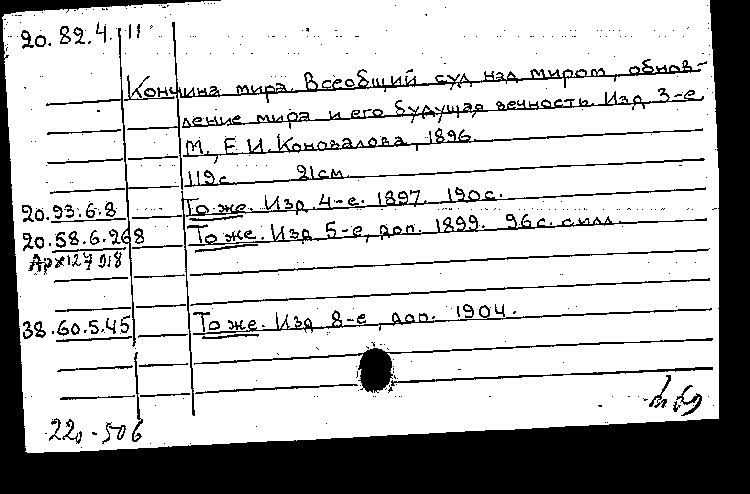 20.82.4.11
Кончина мира. Всеобщий суд над миром, обнов-
ление мира и его будущая вечность. Изд. 3-е.
М., Е.И. Коновалова, 1896.
119с. 21см.
20.93.6.8 То же. Изд. 4-е. 1897. 190с.
20.58.6.268 То же. Изд. 5-е, доп. 1899. 96с. с илл.
38.60.5.45 То же. Изд. 8-е, доп. 1904.